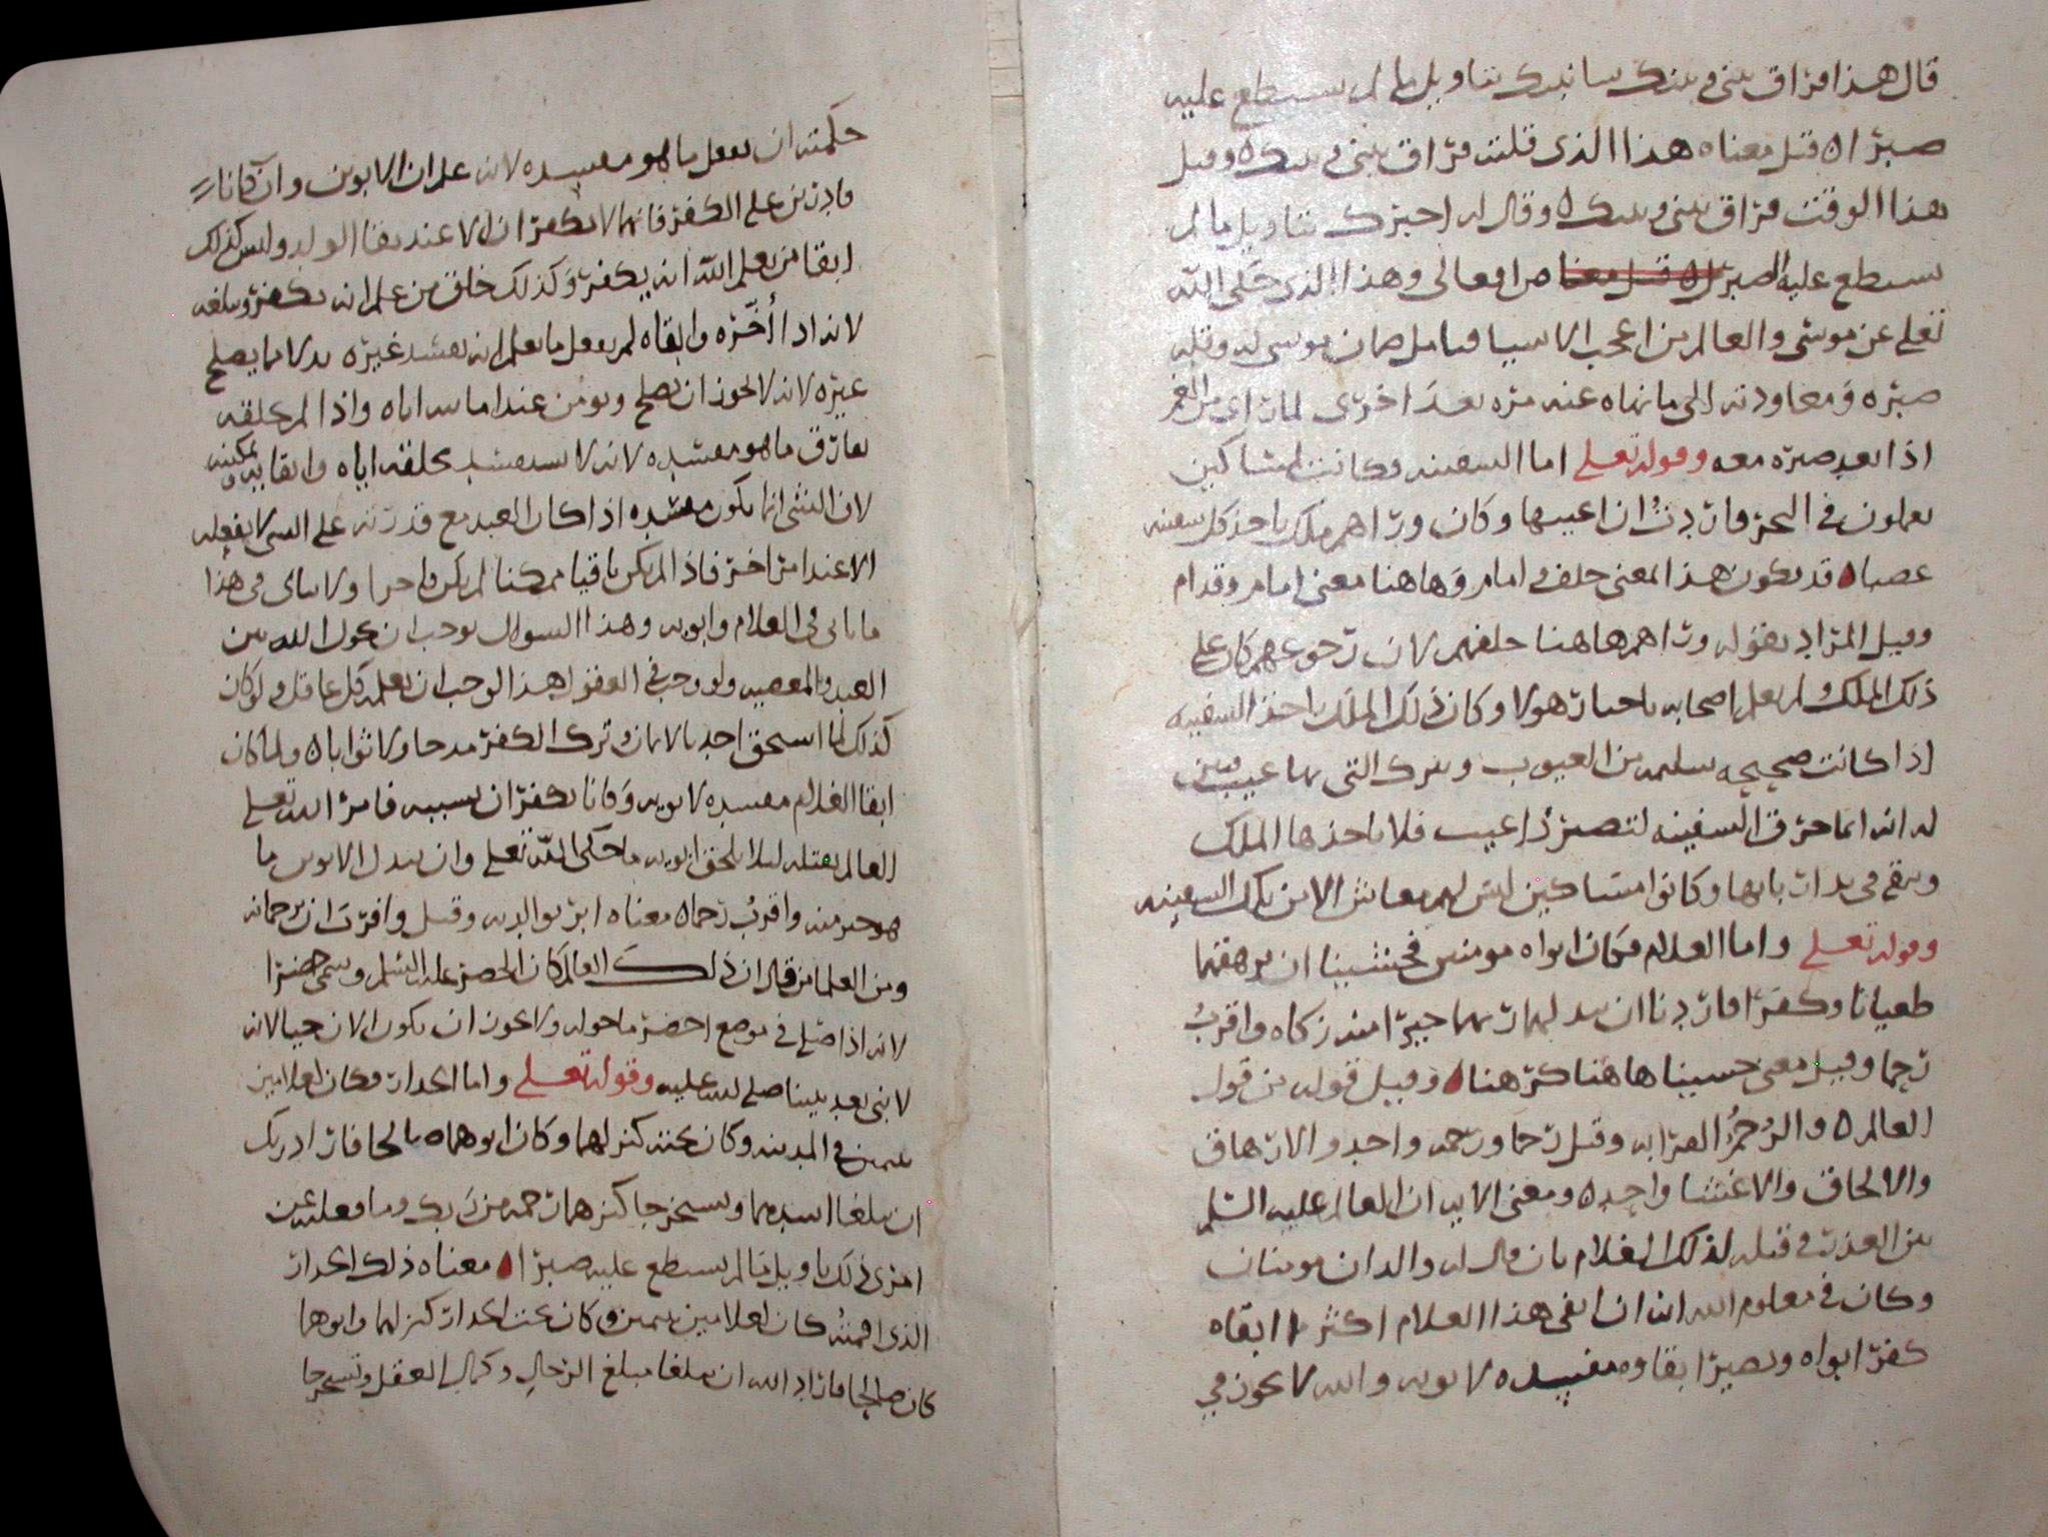 قال هذا فراق بينى وبينك سانبيك بتاويل ما لم تستطع عليه
صبرا ه قيل معناه هذا الذى قلت فراق بينى وبينك ه وقيل
هذا الوقت فراق بينى وبينك ه وقال له اخبرك بتاويل ما لم
تستطع عليه الصبر من افعالى وهذا الذى حكى الله
تعلى عن موسى والعالم من اعجب الاشيا فتامل ضمان موسى له وقلة
صبره ومعاودته الى ما نهاه عنه مره بعد اخرى لما راى من
اذا بعد صبره معه وقوله تعلى اما السفينه فكانت لمساكين
يعملون فى البحر فاردت ان اعيبها وكان وراهم ملك ياخذ كل سفينه
غصبا ه قد يكون هذا المعنى خلف وامام وهاهنا معنى امام وقدام
وقيل المراد بقوله وراهم هاهنا خلفهم لان رجوعهم كان على
ذلك الملك ولم يعلم اصحابه باخبار هولا وكان ذلك الملك ياخذ السفينه
اذا كانت صحيحه سليمه من العيوب ويترك التى بها عيب فبين
له انه انما خرق السفينه لتصير ذا عيب فلا ياخذها الملك
وتبقى فى يد اربابها وكانوا مساكين ليس لهم معاش الا من تلك السفينه
وقوله تعلى واما الغلام فكان ابواه مومنين فخشينا ان يرهقهما
طغيانا وكفرا فاردنا ان يبدلهما ربهما خيرا منه زكاه واقرب
رحما وقيل معنى خشينا هاهنا كرهنا ه وقيل قوله من قول
العالم ه والرحم القرابه وقيل رحما ورحمه واحد والارهاق
والالحاق والاغشا واحد ه ومعنى الايه ان العالم عليه السلم
بين العذر فى قتله لذلك الغلام بان قال له والدان مومنان
وكان فى معلوم الله انه ان ابقى هذا الغلام اكثر ما ابقاه
كفر ابواه ويصير ابقاوه مفسده لابويه والله لا يجوز فى
حكمته ان يفعل ما هو مفسده لانه علم ان الابوين وان كانا
قادرين على الكفر فانهما لا يكفران الا عند بقا الولد وليس كذلك
ابقا من يعلم الله انه يكفر وكذلك خلق من علم انه يكفر وتكليفه
لانه اذا اخره وابقاه لم يفعل ما يعلم انه يفسد غيره بدلا مما يصلح
غيره لانه لا يجوز ان يصلح ويومن عند اماتته اياه واذا لم يكلفه
يفارق ما هو مفسده لانه لا يستفسد بتكليفه اياه وابقايه وتمكينه
لان الشى انما يكون مفسده اذا كان العبد مع قدرته على الشى لا يفعله
الا عند امر اخر فاذا لم يكن باقيا ممكنا لم يكن ولا يتاتى فى هذا
ما ياتى فى الغلام وابويه وهذا السوال يوجب ان يحول الله بين
العبد والمعصيه ولو وجب فى العقول هذا لوجب ان يعلمه كل عاقل ولو كان
كذلك لما استحق احد بالايمان وترك الكفر مدحا ولا ثوابا ه ولما كان
ابقا الغلام مفسده لابويه وكانا يكفران بسببه فامر الله تعلى
العالم بقتله ليلا يلحق ابويه ما حكى الله تعلى وان يبدل الابوين ما
هو خير منه واقرب رحما ه معناه ابر بوالديه وقيل واقرب ان يرحمانه
ومن العلما من قال ان ذلك العالم كان الخضر عليه السلم وسمى خضرا
لانه اذا صلى فى موضع اخضر ما حوله ولا يجوز ان يكون الان حيا لانه
لا نبى بعد نبينا صلى الله عليه وقوله تعلى واما الجدار فكان لغلامين
يتيمين فى المدينه وكان تحته كنز لهما وكان ابوهما ه صالحا فاراد ربك
ان يبلغا اشدهما ويستخرجا كنزهما رحمه من ربك وما فعلته عن
امرى ذلك تاويل ما لم تستطع عليه صبرا ه معناه ذلك الجدار
الذى اقمته كان لغلامين يتيمين وكان تحت الجدار كنز لهما وابوهما
كان صالحا فاراد الله ان يبلغا مبلغ الرجال وكمال العقل ويستخرجا